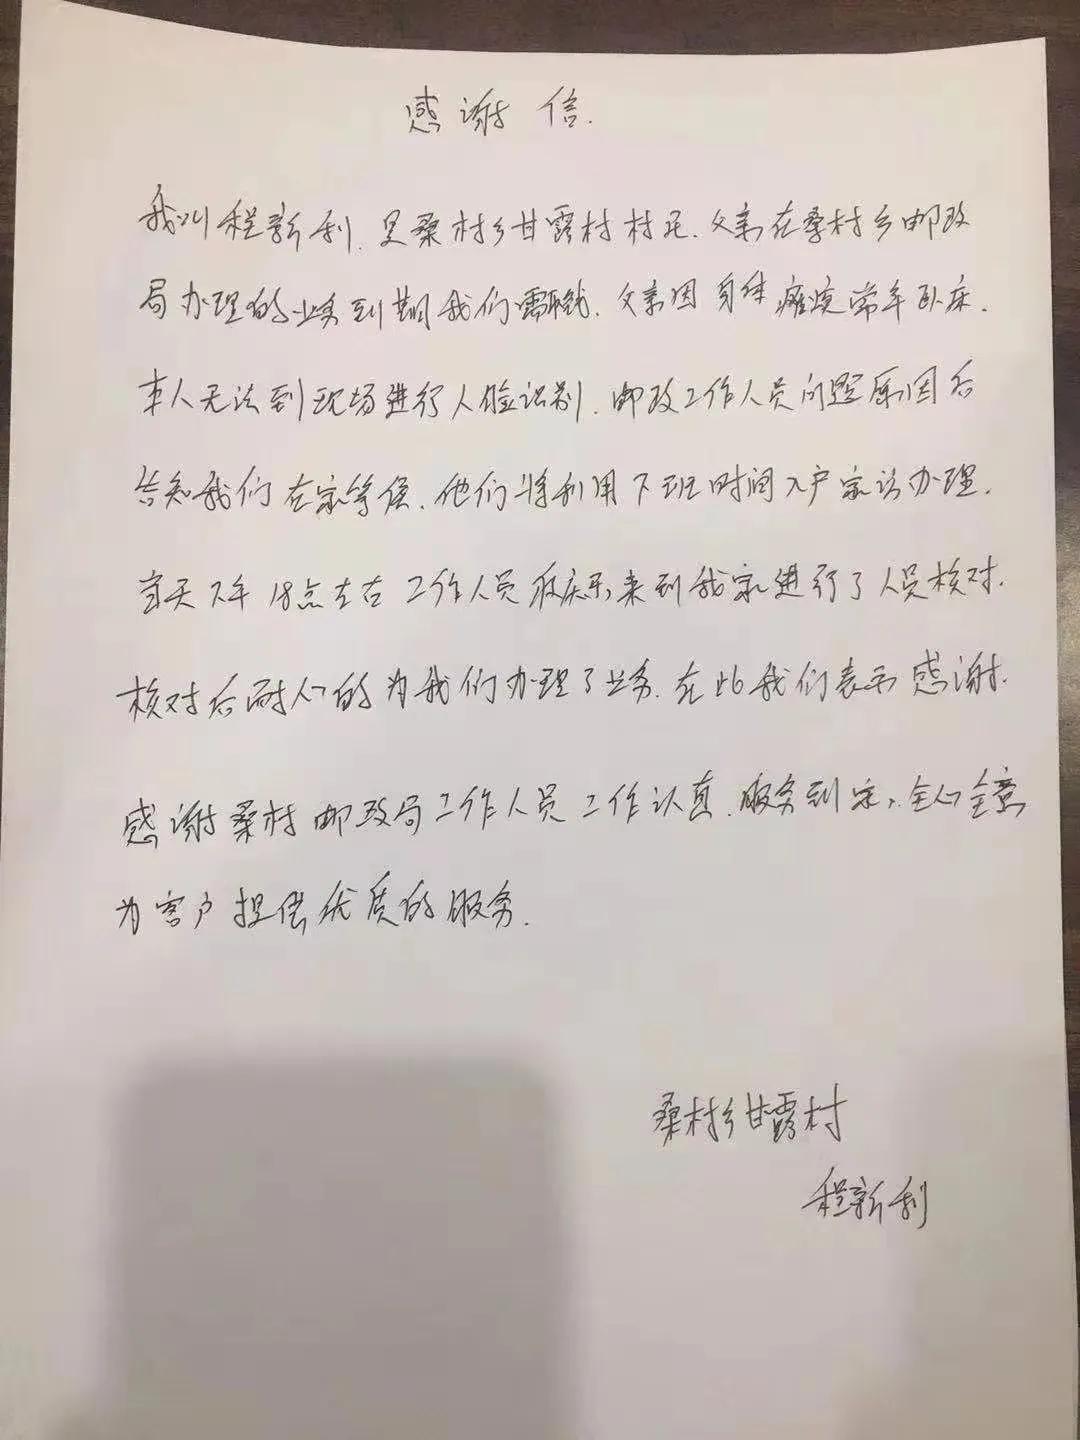 感谢信.
我叫程新利,是桑村乡甘露村村民.父亲在桑村乡邮政
局办理的业务到期我们需取钱.父亲因身体瘫痪常年卧床.
本人无法到现场进行人脸识别.邮政工作人员问题原因后
告知我们在家等候.他们将利用下班时间入户家访办理.
当天下午18点左右工作人员 来到我家进行了人员核对.
核对后耐心的为我们办理了业务.在此我们表示感谢.
感谢桑村邮政局工作人员工作认真.服务到家,全心全意
为客户提供优质的服务.
桑村乡甘露村
程新利